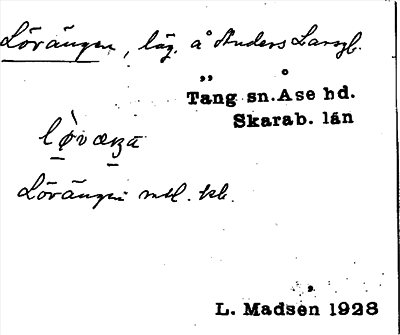 Lövängen, läg. å Anders Larsg.
Täng sn. Åse hd.
Skarab. län
Lövängen mtl. kb.
L. Madsén 1928